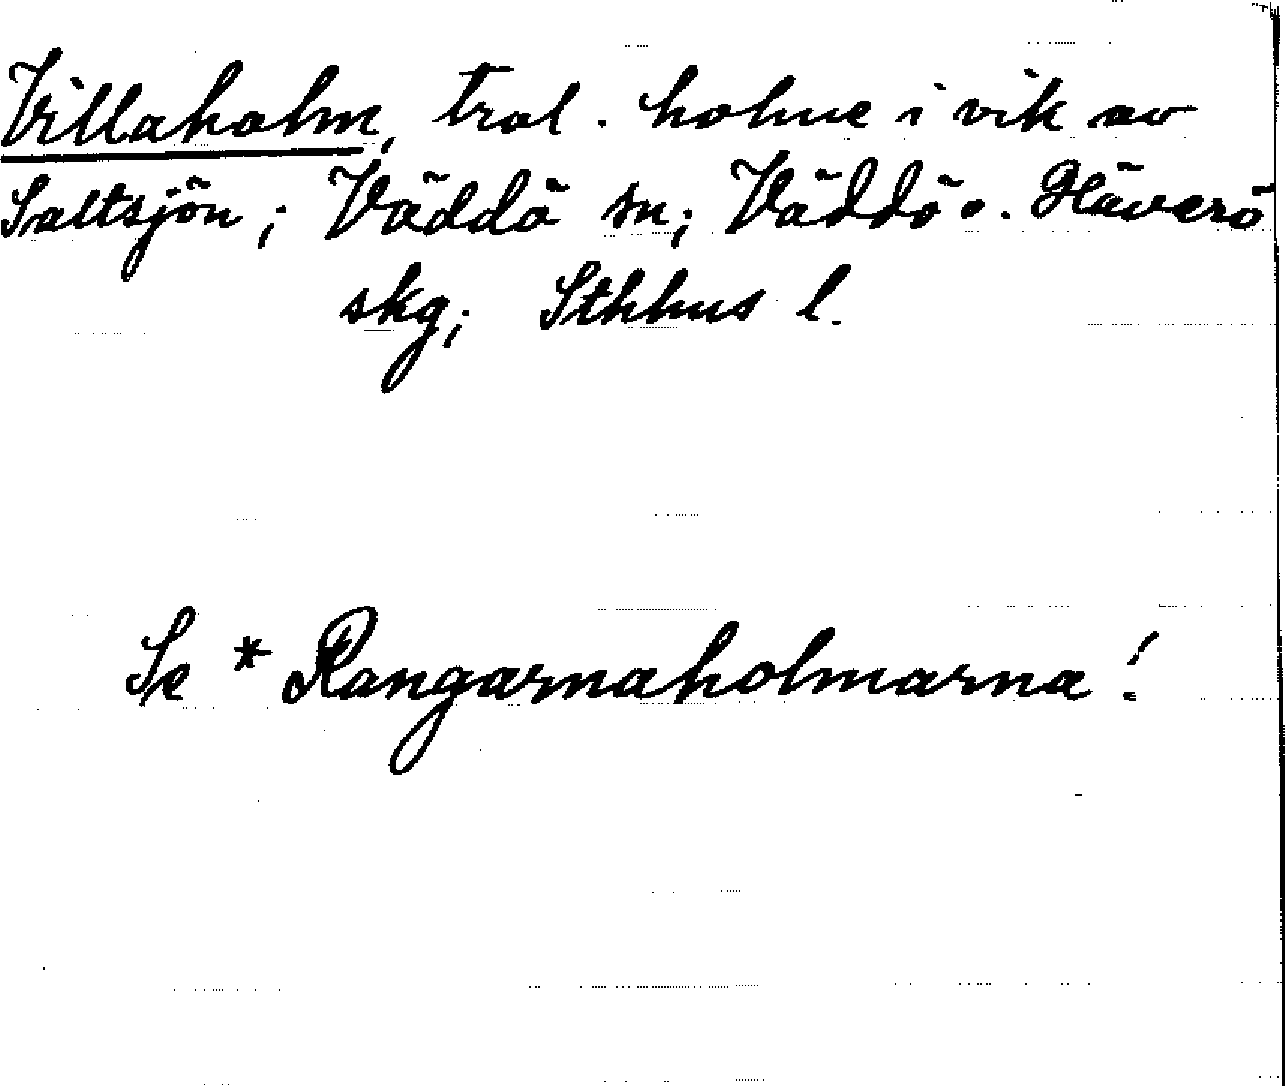 Villaholm, trol. holme i vik av
Saltsjön; Väddö sn; Väddö o. Häverö
skg; Sthhus l.
Se * Rangarnaholmarna!